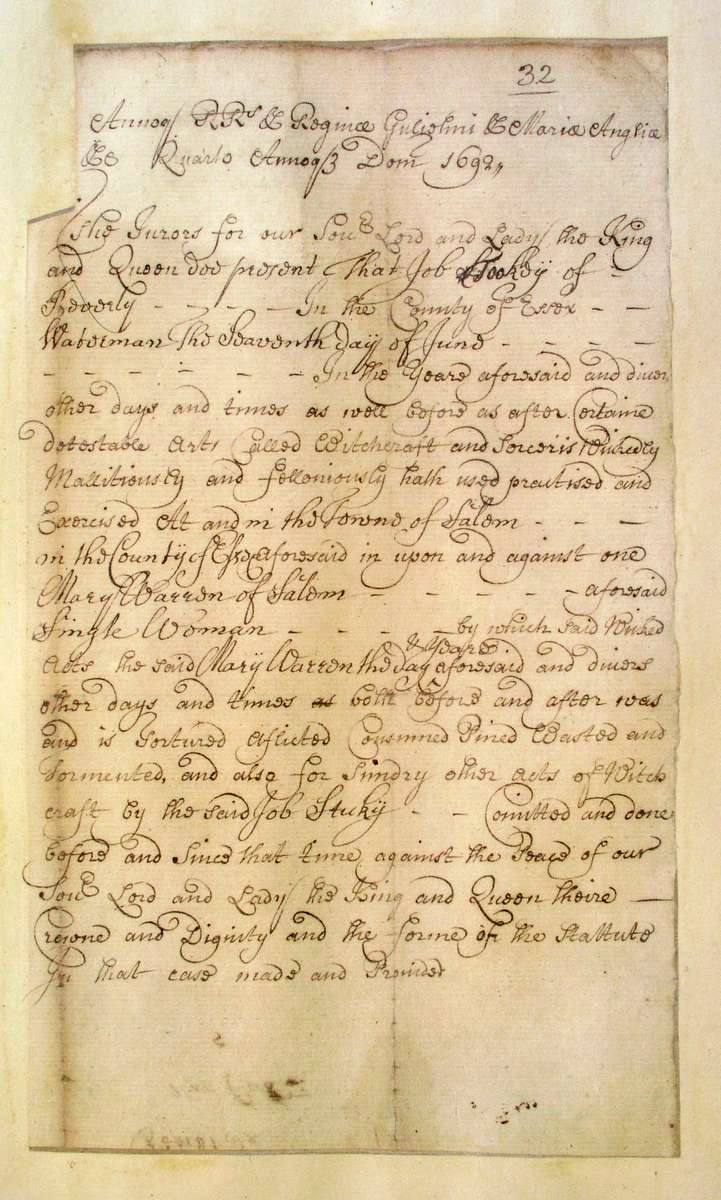 32
Annoq RRs & Reginæ Gulielmi & Mariæ Angliæ
&c Quarto Annoq3 Dom 1692,,
The Jurors for our Soue Lord and Lady the King
and Queen doe present That Job Tookey of -
Beverly - - - - - In the County of Essex - -
Waterman The Seaventh Day of June - - - -
- - - - - - - In the Yeare aforesaid and divers
other days and times as well before as after Certaine
detestable Arts Called Witchcraft and Sorceris Wickedly
Mallitiously and felloniously hath used practised and
Exercised At and in the Towne of Salem - - -
in the County of Essex aforesaid in upon and against one
Mary Warren of Salem - - - - - aforesaid
Single Woman - - - - - by which said Wicked
& Yeare
Acts the said Mary Warren the Day aforesaid and divers
other days and times as both before and after was
and is Tortured Aflicted Consumed Pined Wasted and
Tormented, and also for Sundry other Acts of Witch
craft by the said Job Stuky - - Comitted and done
before and Since that time against the Peace of our
Soue Lord and Lady the King and Queen theire -
Crowne and Dignity and the forme of the Stattute
In that case made and Provided